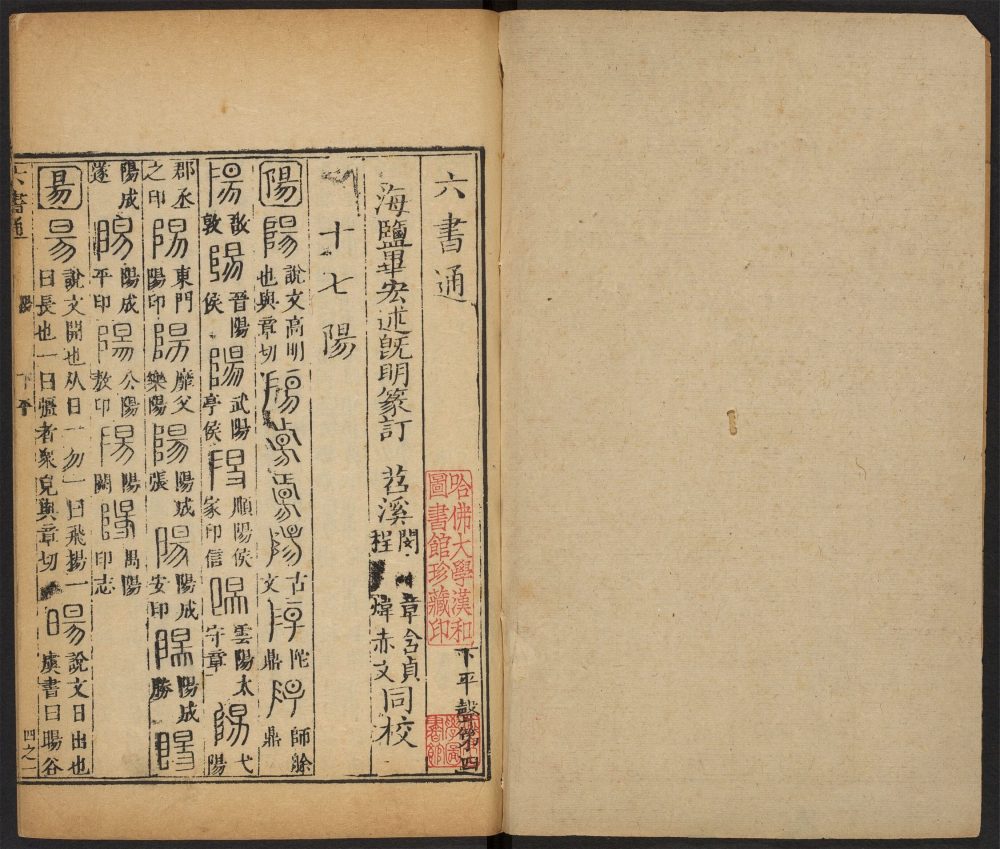 六書通 下平聲第四
哈佛大學漢和
圖書館珍藏印
海鹽畢宏述既明篆訂 苕溪 閔 章含貞 程 煒赤文 同校
十七陽
陽 陽 說文高明也與章切 古文 陀鼎 師艅鼎
陽 敔敦 陽 晉陽侯 陽 武陽亭侯 陽 順陽侯家印信 陽 雲陽太守章 陽 弋陽
郡丞之印 陽 東門陽印 陽 靡父樂陽 陽 陽城張 陽 陽成安印 陽 陽成勝 陽
陽成遂 陽 陽成平印 陽 公陽敖印 陽 陽閎 陽 禺陽印志
昜 昜 說文開也从日一勿一曰飛揚一曰長也一曰彊者衆皃與章切 暘 說文日出也虞書曰暘谷
六書通 陽 下平 四之一